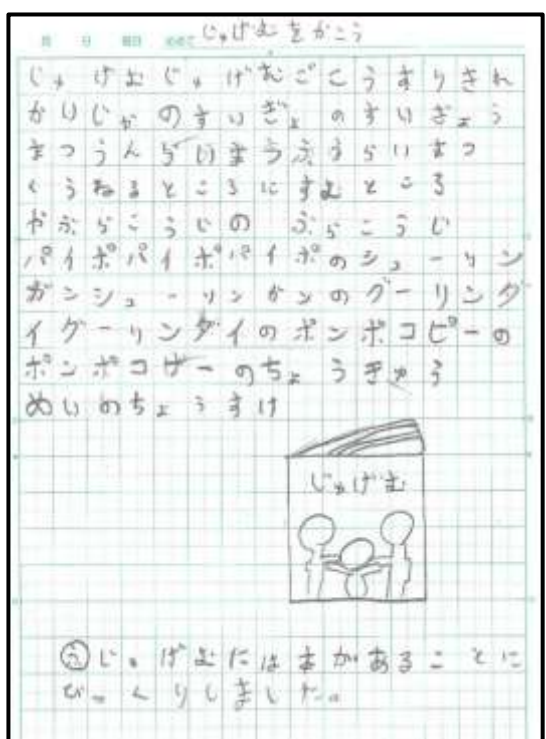 月 日 曜日 めあて じゅげむをかこう
じゅげむじゅげむごこうすりきれ
かいじゃのすいぎょのすいぎょう
まつうんらいまつふうらいまつ
くうねるところにすむところ
やぶらこうじの ぶらこうじ
パイポパイポパイポのシューリン
ガンシューリンガンのグーリンダ
イグーリンダイのポンポコピーの
ポンポコナーのちょうきゅう
めいのちょうすけ
じゅげむ
うじゅげむには本があることに
びっくりしました。